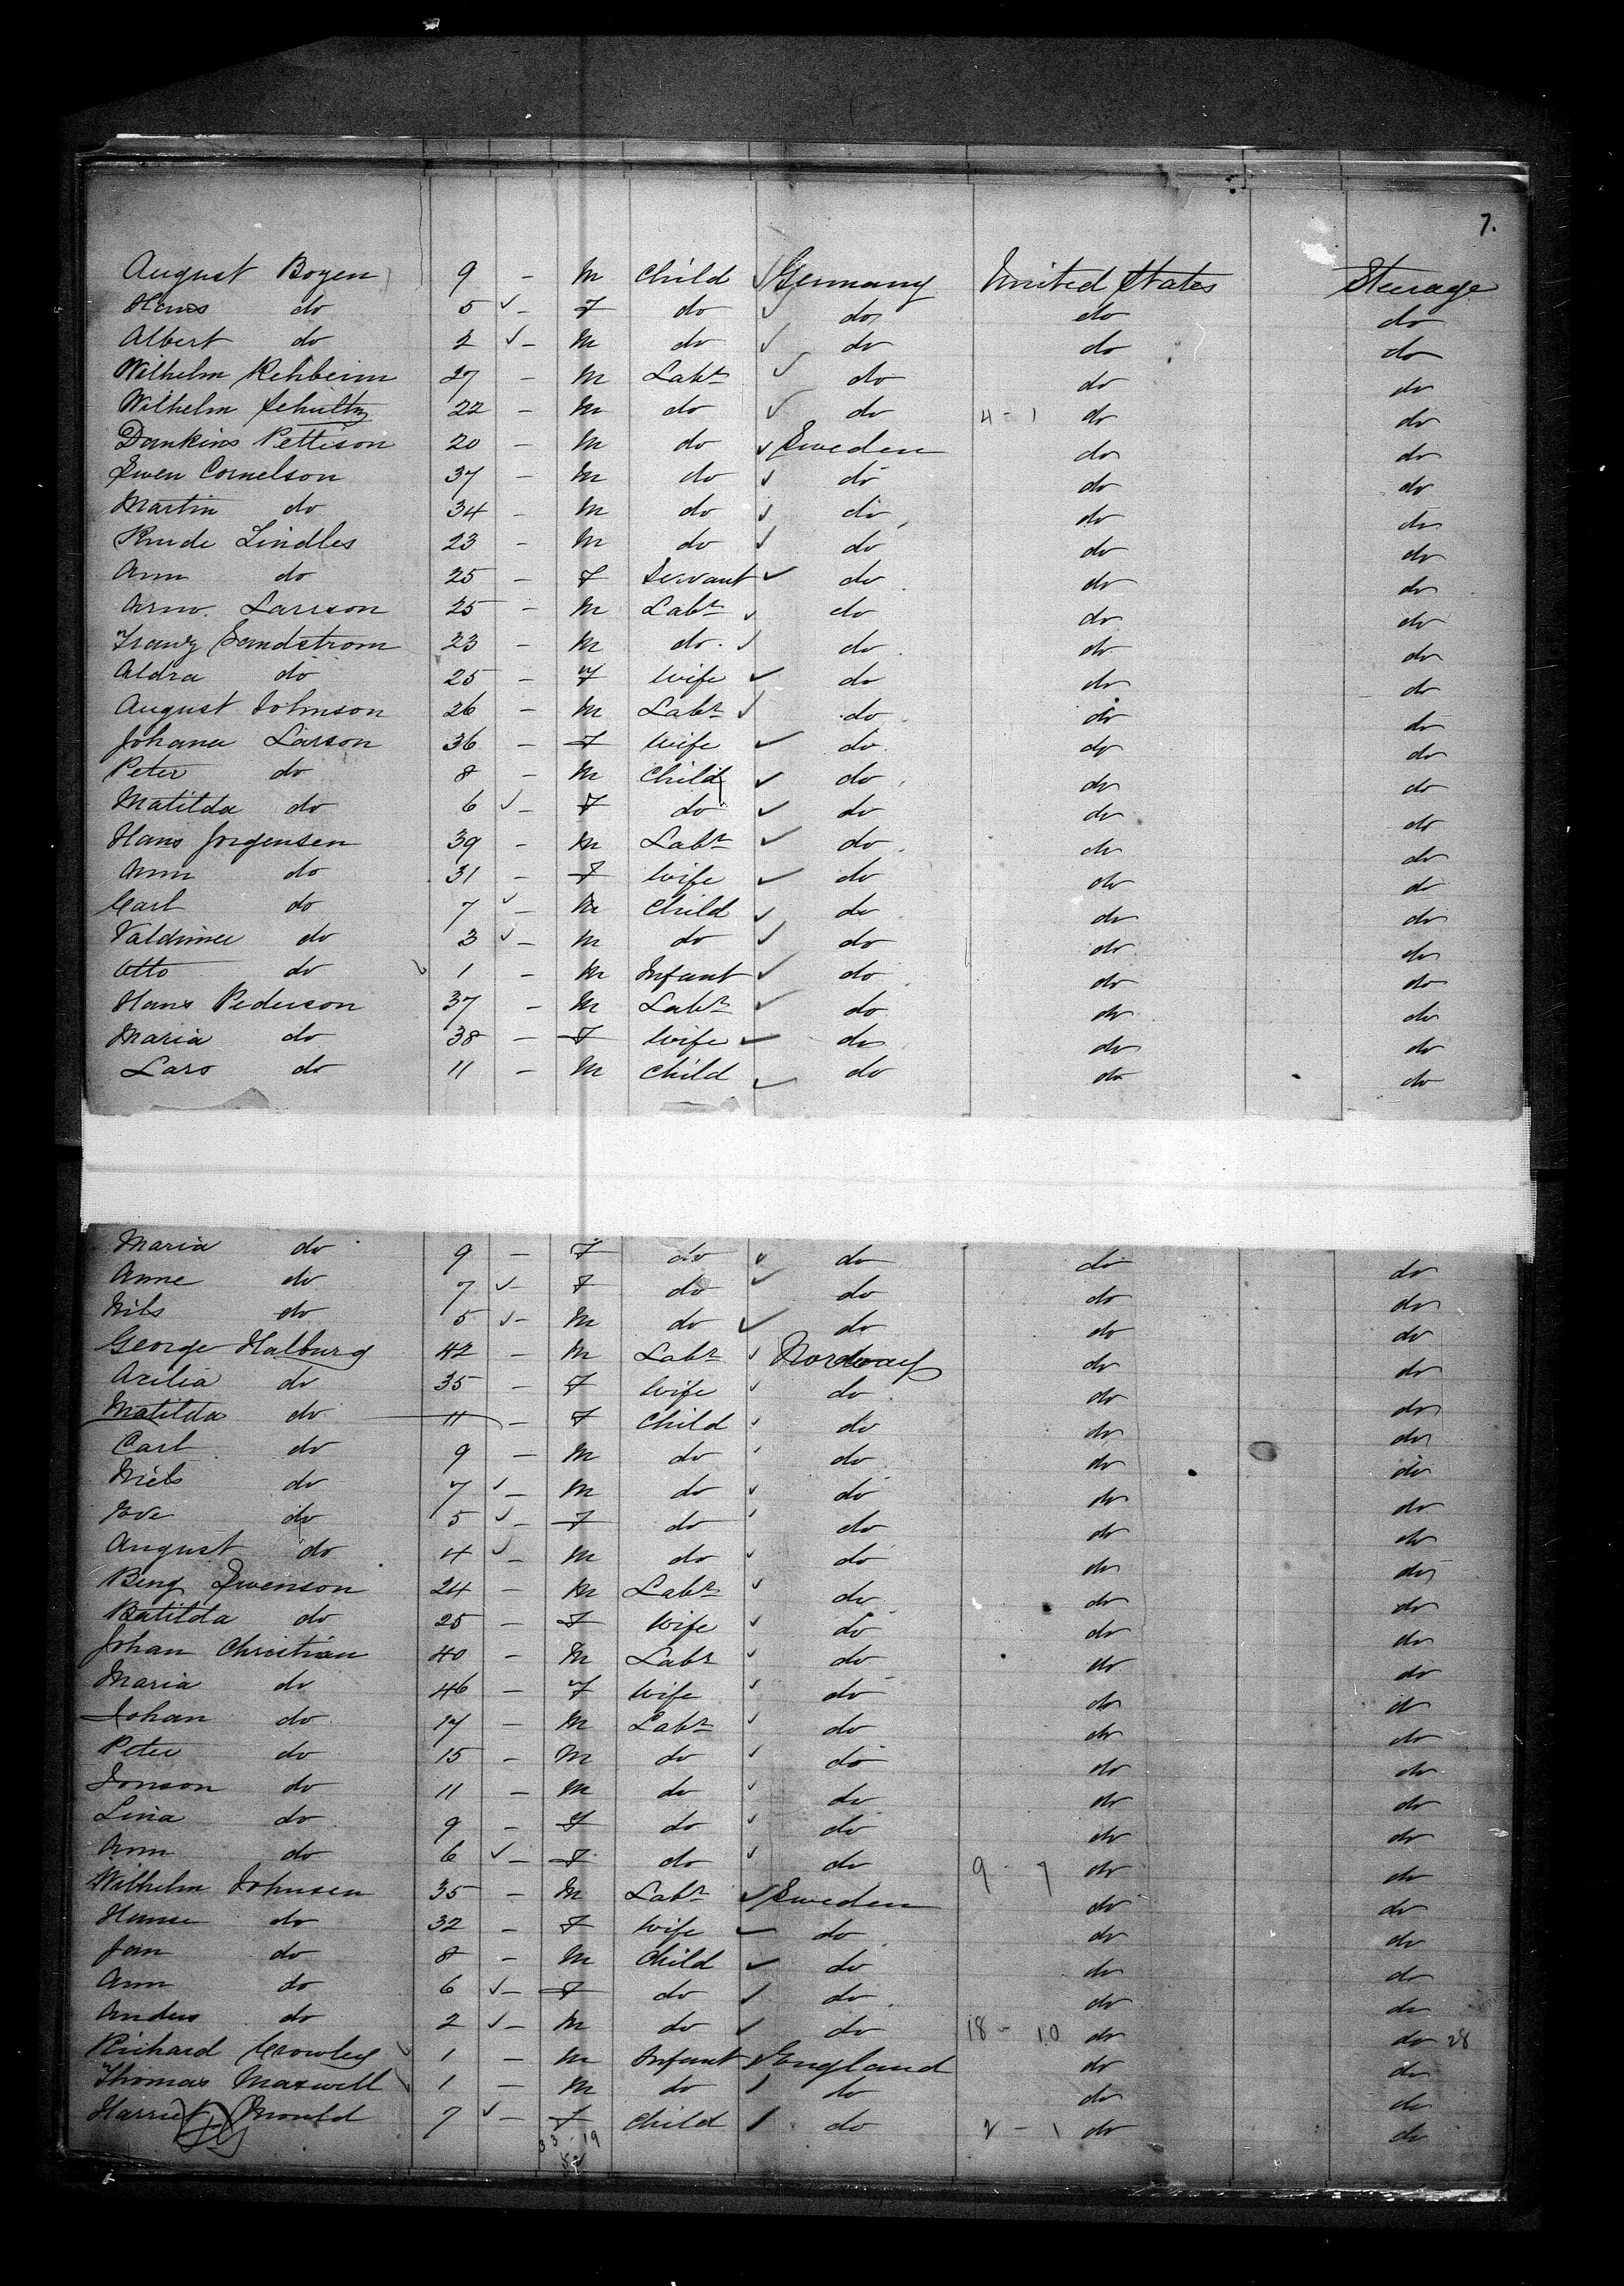 7.
August Boyen 9 - M Child ✓ Germany United States Steerage
Hans do 5 ✓ - F do ✓ do do do
Albert do 2 ✓ - M do ✓ do do do
Wilhelm Rehbeim 27 - M Labr ✓ do do do
Wilhelm Schultz 22 - M do ✓ do 4 - 1 do do
Dankins Pettison 20 - M do ✓ Sweden do do
Swen Cornelson 37 - M do ✓ do do do
Martin do 34 - M do ✓ do do do
Lindles 23 - M do ✓ do do do
Ann do 25 - F Servant ✓ do do do
Arno. Larsson 25 - M Labr ✓ do do do
Franz Sandstrom 23 - M do ✓ do do do
Aldra do 25 - F Wife ✓ do do do
August Johnson 26 - M Labr ✓ do do do
Johana Larson 36 - F Wife ✓ do do do
Peter do 8 - M Child ✓ do do do
Matilda do 6 ✓ - F do ✓ do do do
Hans Jorgensen 39 - M Labr ✓ do do do
Ann do 31 - F Wife ✓ do do do
Carl do 7 ✓ - M Child ✓ do do do
Valdimer do 3 ✓ - M do ✓ do do do
Otto do ✓ 1 - M Infant ✓ do do do
Hans Pederson 37 - M Labr ✓ do do do
Maria do 38 - F Wife ✓ do do do
Lars do 11 - M Child ✓ do do do
Maria do 9 - F do ✓ do do do
Anne do 7 ✓ - F do ✓ do do do
Nils do 5 ✓ - M do ✓ do do do
George Halburg 42 - M Labr ✓ Norway do do
Axilia do 35 - F Wife ✓ do do do
Matilda do 11 - F Child ✓ do do do
Carl do 9 - M do ✓ do do do
Niels do 7 ✓ - M do ✓ do do do
Eve do 5 ✓ - F do ✓ do do do
August do 4 ✓ - M do ✓ do do do
Beng Swenson 24 - M Labr ✓ do do do
Batilda do 25 - F Wife ✓ do do do
Johan Christian 40 - M Labr ✓ do do do
Maria do 46 - F Wife ✓ do do do
Johan do 17 - M Labr ✓ do do do
Peter do 15 - M do ✓ do do do
Jonson do 11 - M do ✓ do do do
Lina do 9 - F do ✓ do do do
Ann do 6 ✓ - F do ✓ do 9 - 7 do do
Wilhelm Johnsen 35 - M Labr ✓ Sweden do do
Hanse do 32 - F Wife ✓ do do do
Jan do 8 - M Child ✓ do do do
Ann do 6 ✓ - F do ✓ do do do
Anders do 2 ✓ - M do ✓ do 18 - 10 do do 28
Richard Crowley ✓ 1 - M Infant ✓ England do do
Thomas Maxwell ✓ 1 - M do ✓ do do do
Harriet Mould 7 ✓ - F Child ✓ do 2 - 1 do do
33 - 19
52